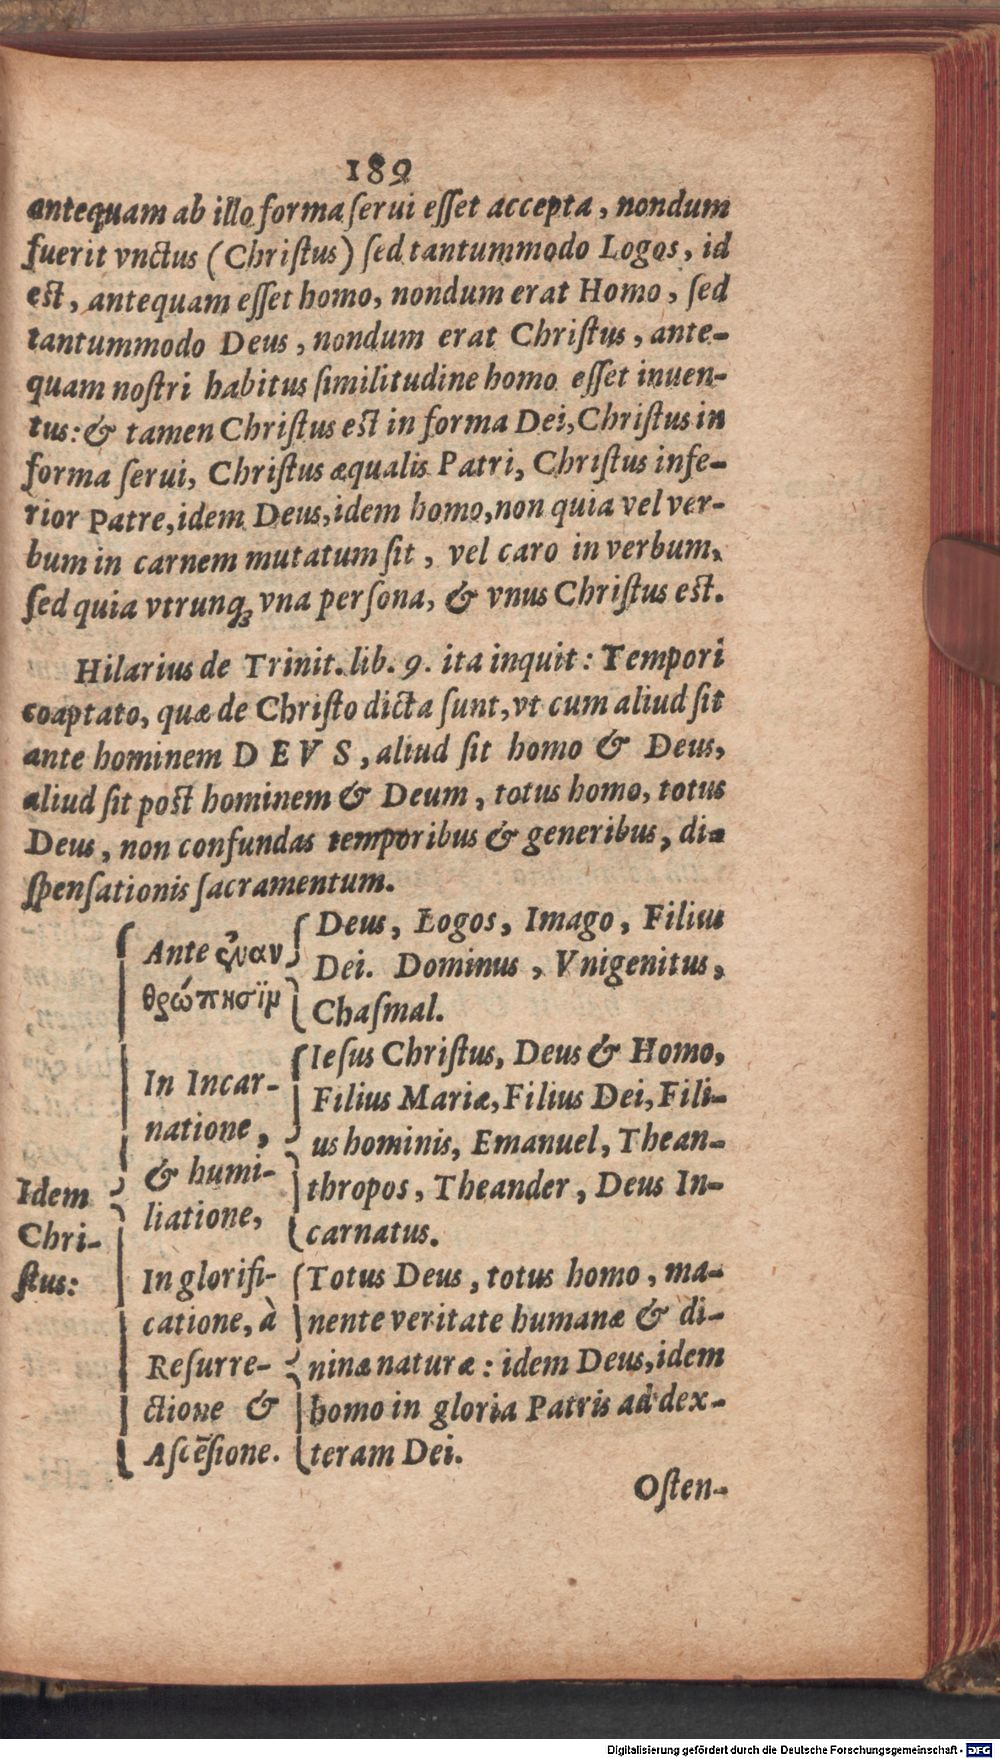 189
antequam ab illo forma ſerui eſſet accepta, nondum
fuerit vnctus (Chriſtus) ſed tantummodo Logos, id
eſt, antequam eſſet homo, nondum erat Homo, ſed
tantummodo Deus, nondum erat Chriſtus, ante-
quam noſtri habitus ſimilitudine homo eſſet inuen-
tus: & tamen Chriſtus eſt in forma Dei, Chriſtus in
forma ſerui, Chriſtus æqualis Patri, Chriſtus infe-
rior Patre, idem Deus, idem homo, non quia vel ver-
bum in carnem mutatum ſit, vel caro in verbum,
ſed quia vtrunq; vna perſona, & vnus Chriſtus eſt.
Hilarius de Trinit. lib. 9. ita inquit: Tempori
coaptato, quæ de Chriſto dicta ſunt, vt cum aliud ſit
ante hominem DEVS, aliud ſit homo & Deus,
aliud ſit poſt hominem & Deum, totus homo, totus
Deus, non confundas temporibus & generibus, di-
ſpenſationis ſacramentum.
Idem
Chri-
ſtus:
Ante ἐναν
θρώπησϊμ
Deus, Logos, Imago, Filius
Dei. Dominus, Vnigenitus,
Chaſmal.
In Incar-
natione,
& humi-
liatione,
Ieſus Chriſtus, Deus & Homo,
Filius Mariæ, Filius Dei, Fili-
us hominis, Emanuel, Thean-
thropos, Theander, Deus In-
carnatus.
In glorifi-
catione, à
Reſurre-
ctione &
Aſcēſione.
Totus Deus, totus homo, ma-
nente veritate humanæ & di-
ninæ naturæ: idem Deus, idem
homo in gloria Patris ad dex-
teram Dei.
Oſten-
Digitalisierung gefördert durch die Deutsche Forschungsgemeinschaft - DFG